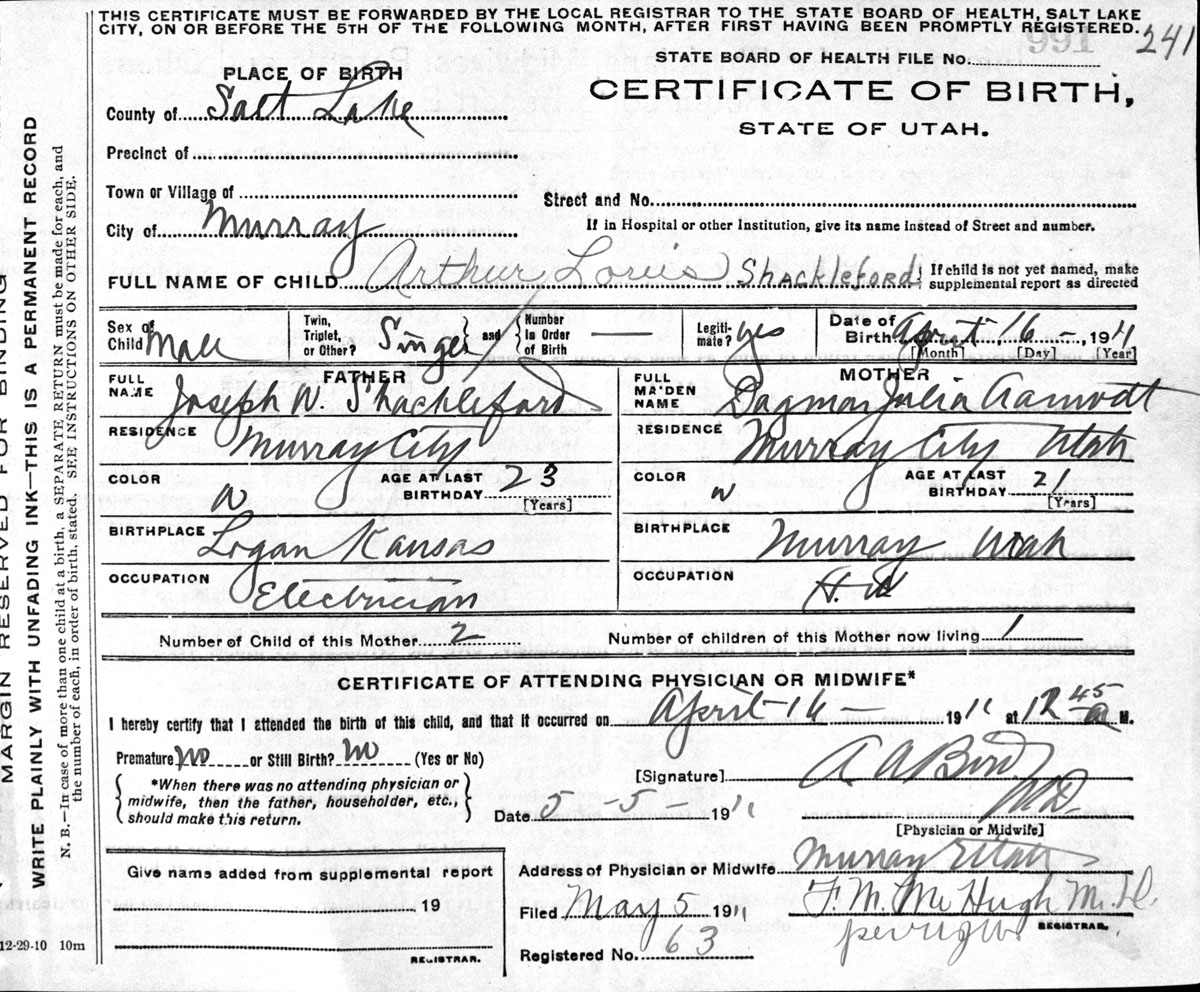 THIS CERTIFICATE MUST BE FORWARDED BY THE LOCAL REGISTRAR TO THE STATE BOARD OF HEALTH, SALT LAKE
CITY, ON OR BEFORE THE 5TH OF THE FOLLOWING MONTH, AFTER FIRST HAVING BEEN PROMPTLY REGISTERED.
991
241
STATE BOARD OF HEALTH FILE No.
CERTIFICATE OF BIRTH,
STATE OF UTAH.
PLACE OF BIRTH
County of Salt Lake
Precinct of
Town or Village of
City of Murray
Street and No.
If in Hospital or other Institution, give its name instead of Street and number.
FULL NAME OF CHILD Arthur Louis Shackleford
If child is not yet named, make
supplemental report as directed
Sex of
Child Male
Twin,
Triplet,
or Other? Single
and
Number
in Order
of Birth —
Legiti-
mate? yes
Date of
Birth April 16 - , 1911
[Month] [Day] [Year]
FATHER
FULL
NAME Joseph W. Shackleford
RESIDENCE Murray City
COLOR W
AGE AT LAST
BIRTHDAY 23
[Years]
BIRTHPLACE Logan Kansas
OCCUPATION Electrician
MOTHER
FULL
MAIDEN
NAME Dagmar Julia Aamodt
RESIDENCE Murray City Utah
COLOR W
AGE AT LAST
BIRTHDAY 21
[Years]
BIRTHPLACE Murray Utah
OCCUPATION H. W
Number of Child of this Mother 2
Number of children of this Mother now living 1
CERTIFICATE OF ATTENDING PHYSICIAN OR MIDWIFE*
I hereby certify that I attended the birth of this child, and that it occurred on April 16 — 1911 at 12 45 a M.
Premature No or Still Birth? No (Yes or No)
*When there was no attending physician or
midwife, then the father, householder, etc.,
should make this return.
[Signature] A A Bird
M.D.
[Physician or Midwife]
Date 5 - 5 - 1911
Address of Physician or Midwife Murray Utah
Filed May 5 1911
F. M. McHugh M.D.
REGISTRAR.
Registered No. 63
Give name added from supplemental report
19
REGISTRAR.
MARGIN RESERVED FOR BINDING
WRITE PLAINLY WITH UNFADING INK—THIS IS A PERMANENT RECORD
N. B.—In case of more than one child at a birth, a SEPARATE RETURN must be made for each, and
the number of each, in order of birth, stated. SEE INSTRUCTIONS ON OTHER SIDE.
12-29-10 10m